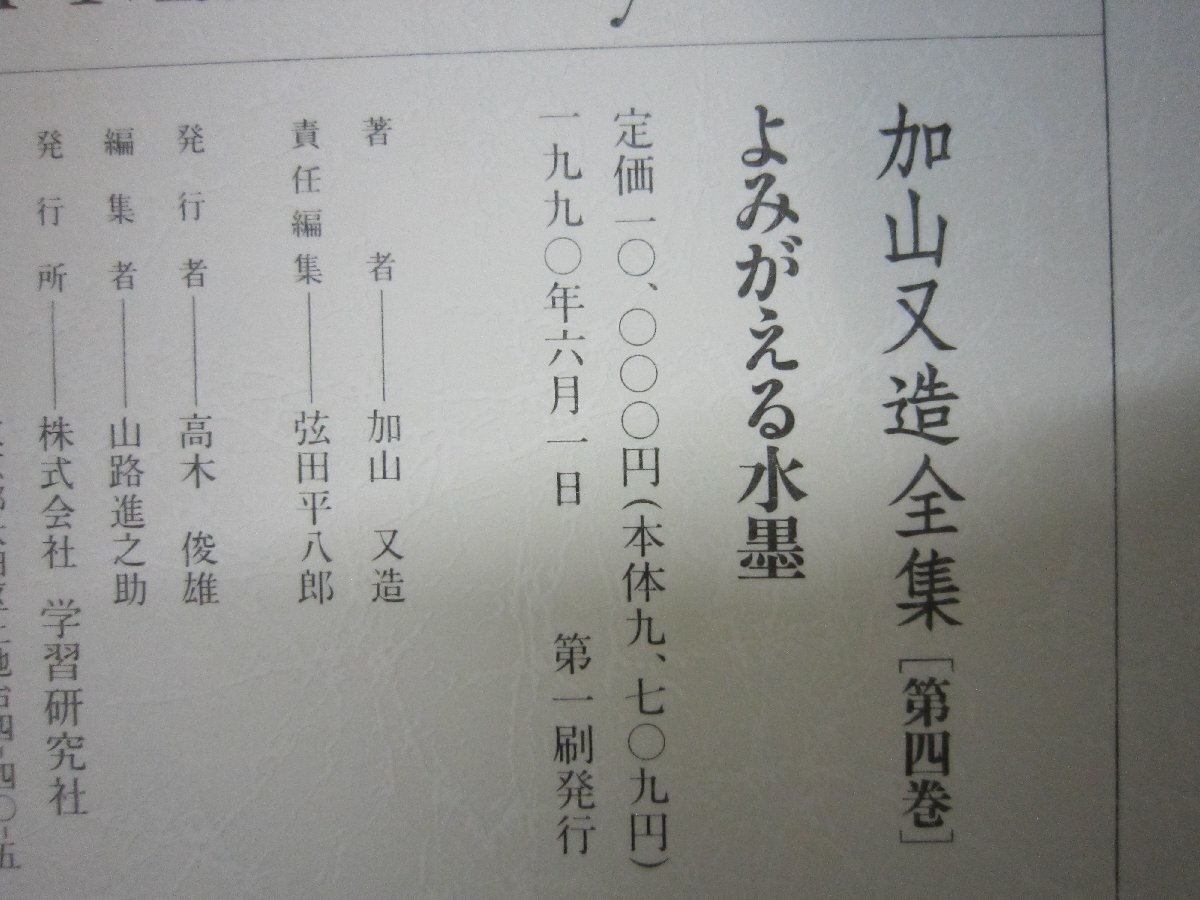 加山又造全集［第四巻］
よみがえる水墨
定価一〇、〇〇〇円（本体九、七〇九円）
一九九〇年六月一日　第一刷発行
著者――加山 又造
責任編集――弦田平八郎
発行者――高木 俊雄
編集者――山路進之助
発行所――株式会社 学習研究社
四-四〇-五